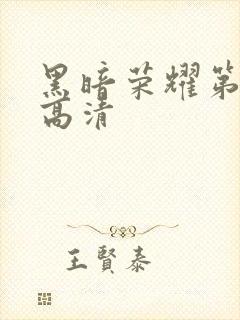 黑暗荣耀第
高清
王賢泰